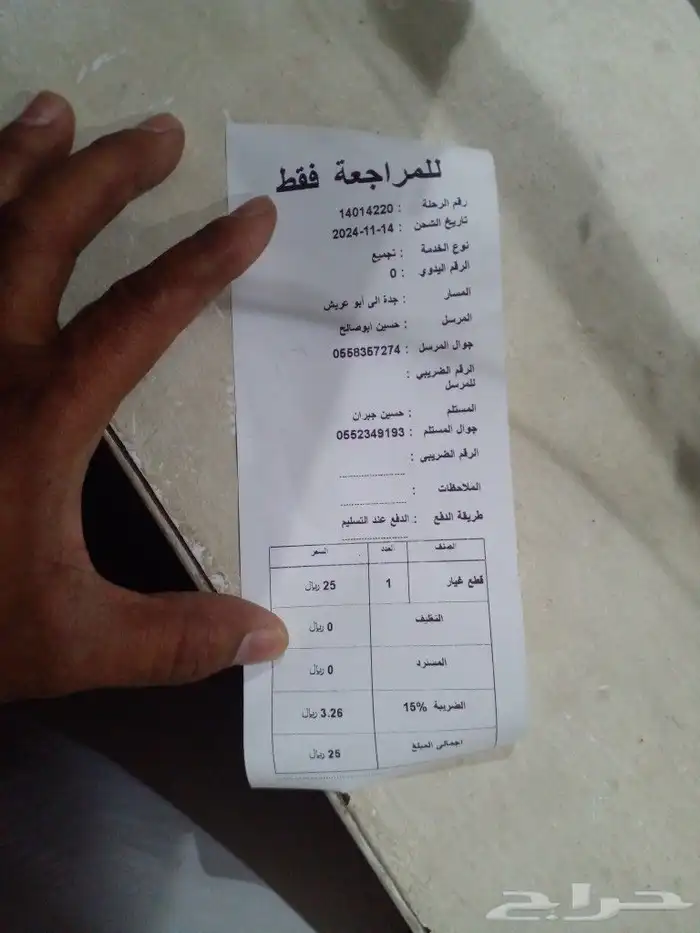 للمراجعة فقط
رقم الرحلة : 14014220
تاريخ الشحن : 2024-11-14
نوع الخدمة : تجميع
الرقم اليدوي : 0
المسار : جدة الى أبو عريش
المرسل : حسين ابوصالح
جوال المرسل : 0558357274
الرقم الضريبي :
للمرسل
المستلم : حسين جبران
جوال المستلم : 0552349193
الرقم الضريبي :
الملاحظات :
طريقة الدفع : الدفع عند التسليم
الصنف العدد السعر
قطع غيار 1 25 ريال
التغليف 0 ريال
المسترد 0 ريال
الضريبة 15% 3.26 ريال
اجمالى المبلغ 25 ريال
حراج